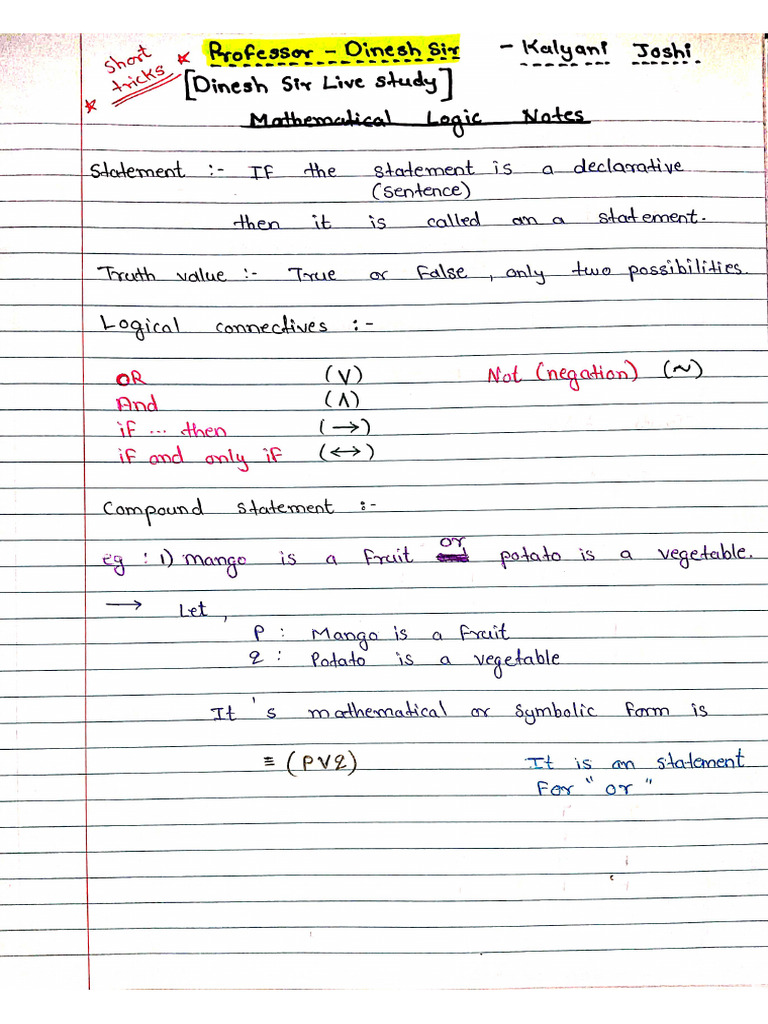 Short tricks
Professor - Dinesh Sir - Kalyani Joshi
[Dinesh Sir Live Study]
Mathematical Logic Notes
Statement :- If the statement is a declarative
(sentence)
then it is called an a statement.
Truth value :- True or False, only two possibilities.
Logical connectives :-
OR (∨) Not (negation) (~)
And (∧)
if ... then (→)
if and only if (↔)
Compound statement :-
eg : 1) Mango is a fruit or potato is a vegetable.
→ Let,
P : Mango is a fruit
q : Potato is a vegetable
It's mathematical or symbolic form is
≡ (P∨q) It is an statement
For "or"